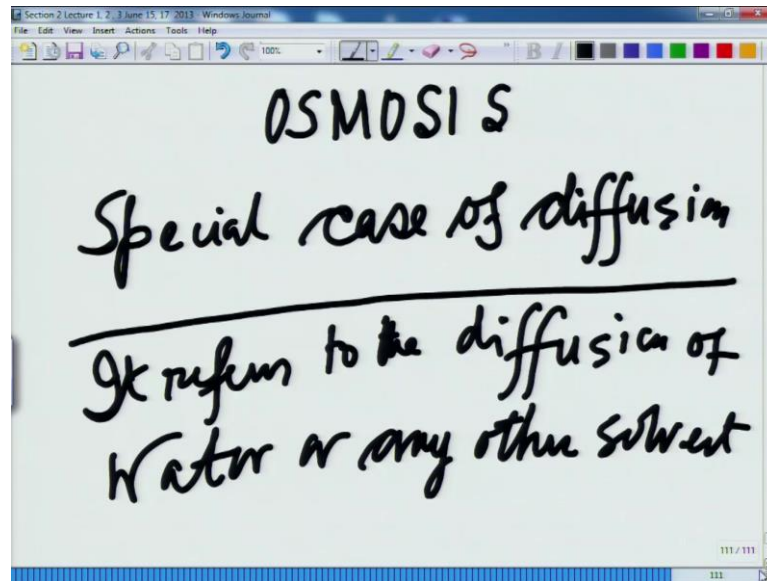 Section 2 Lecture 1, 2 , 3 June 15, 17 2013 - Windows Journal
File Edit View Insert Actions Tools Help
100%
B I
OSMOSIS
Special case of diffusion
It refers to the diffusion of
Water or any other solvent
111 / 111
111